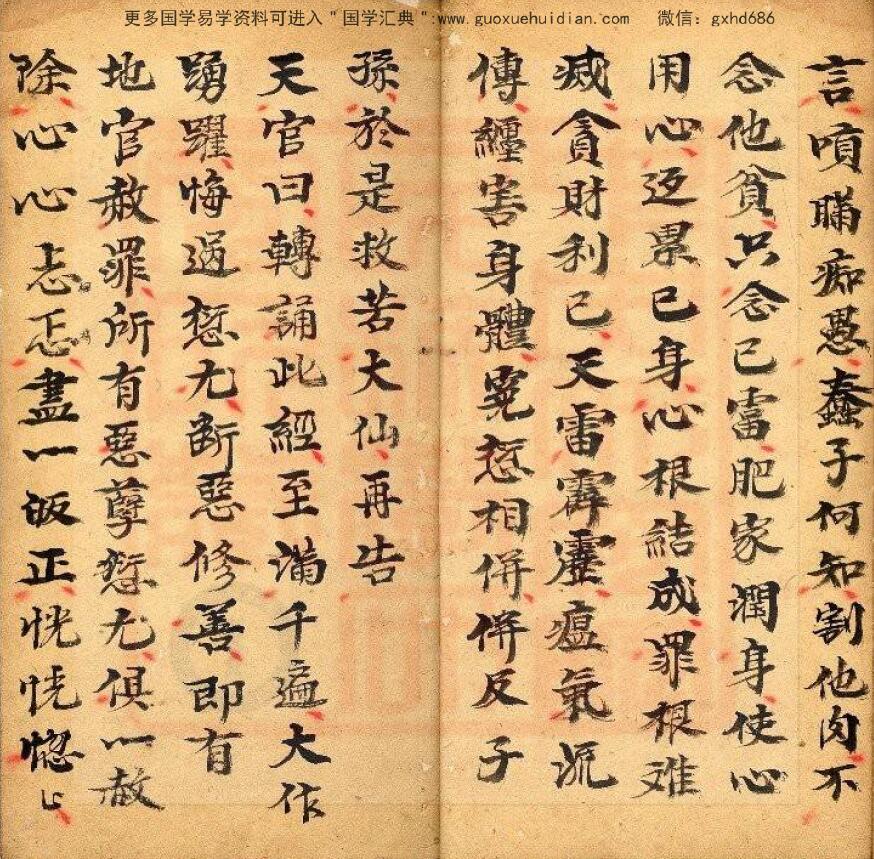 更多国学易学资料可进入"国学汇典":www.guoxuehuidian.com 微信:gxhd686
言嗔瞞痴愚蠢子何知割他肉不
念他貧只念己富肥家潤身使心
用心返累己身心根結成罪根难
减貪財利己天雷霹靂瘟氣流
傳纏害身體冤愆相併併及子
孫於是救苦大仙再告
天官曰轉誦此經至满千遍大作
踴躍悔過愆尤断惡修善即有
地官赦罪所有惡孽愆尤俱一赦
除心心忐忑盡一皈正恍恍惚